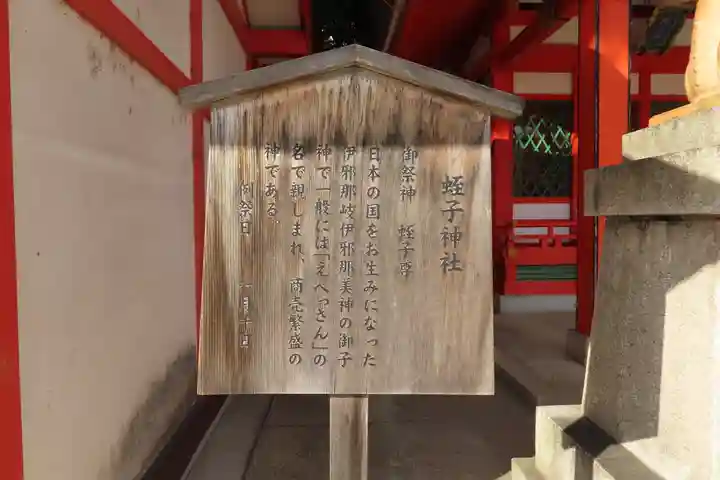 蛭子神社
御祭神 蛭子尊
日本の国をお生みになった
伊邪那岐伊邪那美神の御子
神で一般には「えべっさん」の
名で親しまれ、商売繁盛の
神である。
例祭日 一月十日